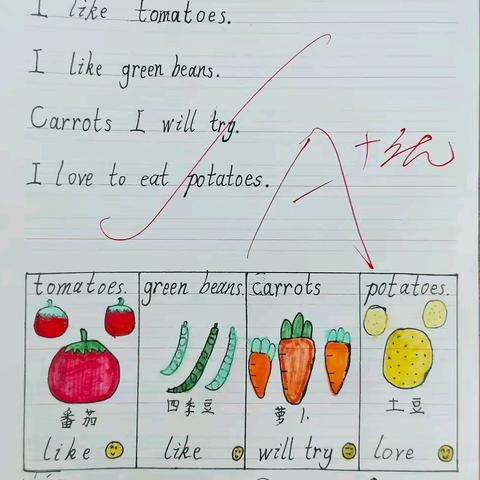 I like tomatoes.
I like green beans.
Carrots I will try.
I love to eat potatoes.
A+
tomatoes. green beans. Carrots potatoes.
番茄 四季豆 萝卜 土豆
like like will try love